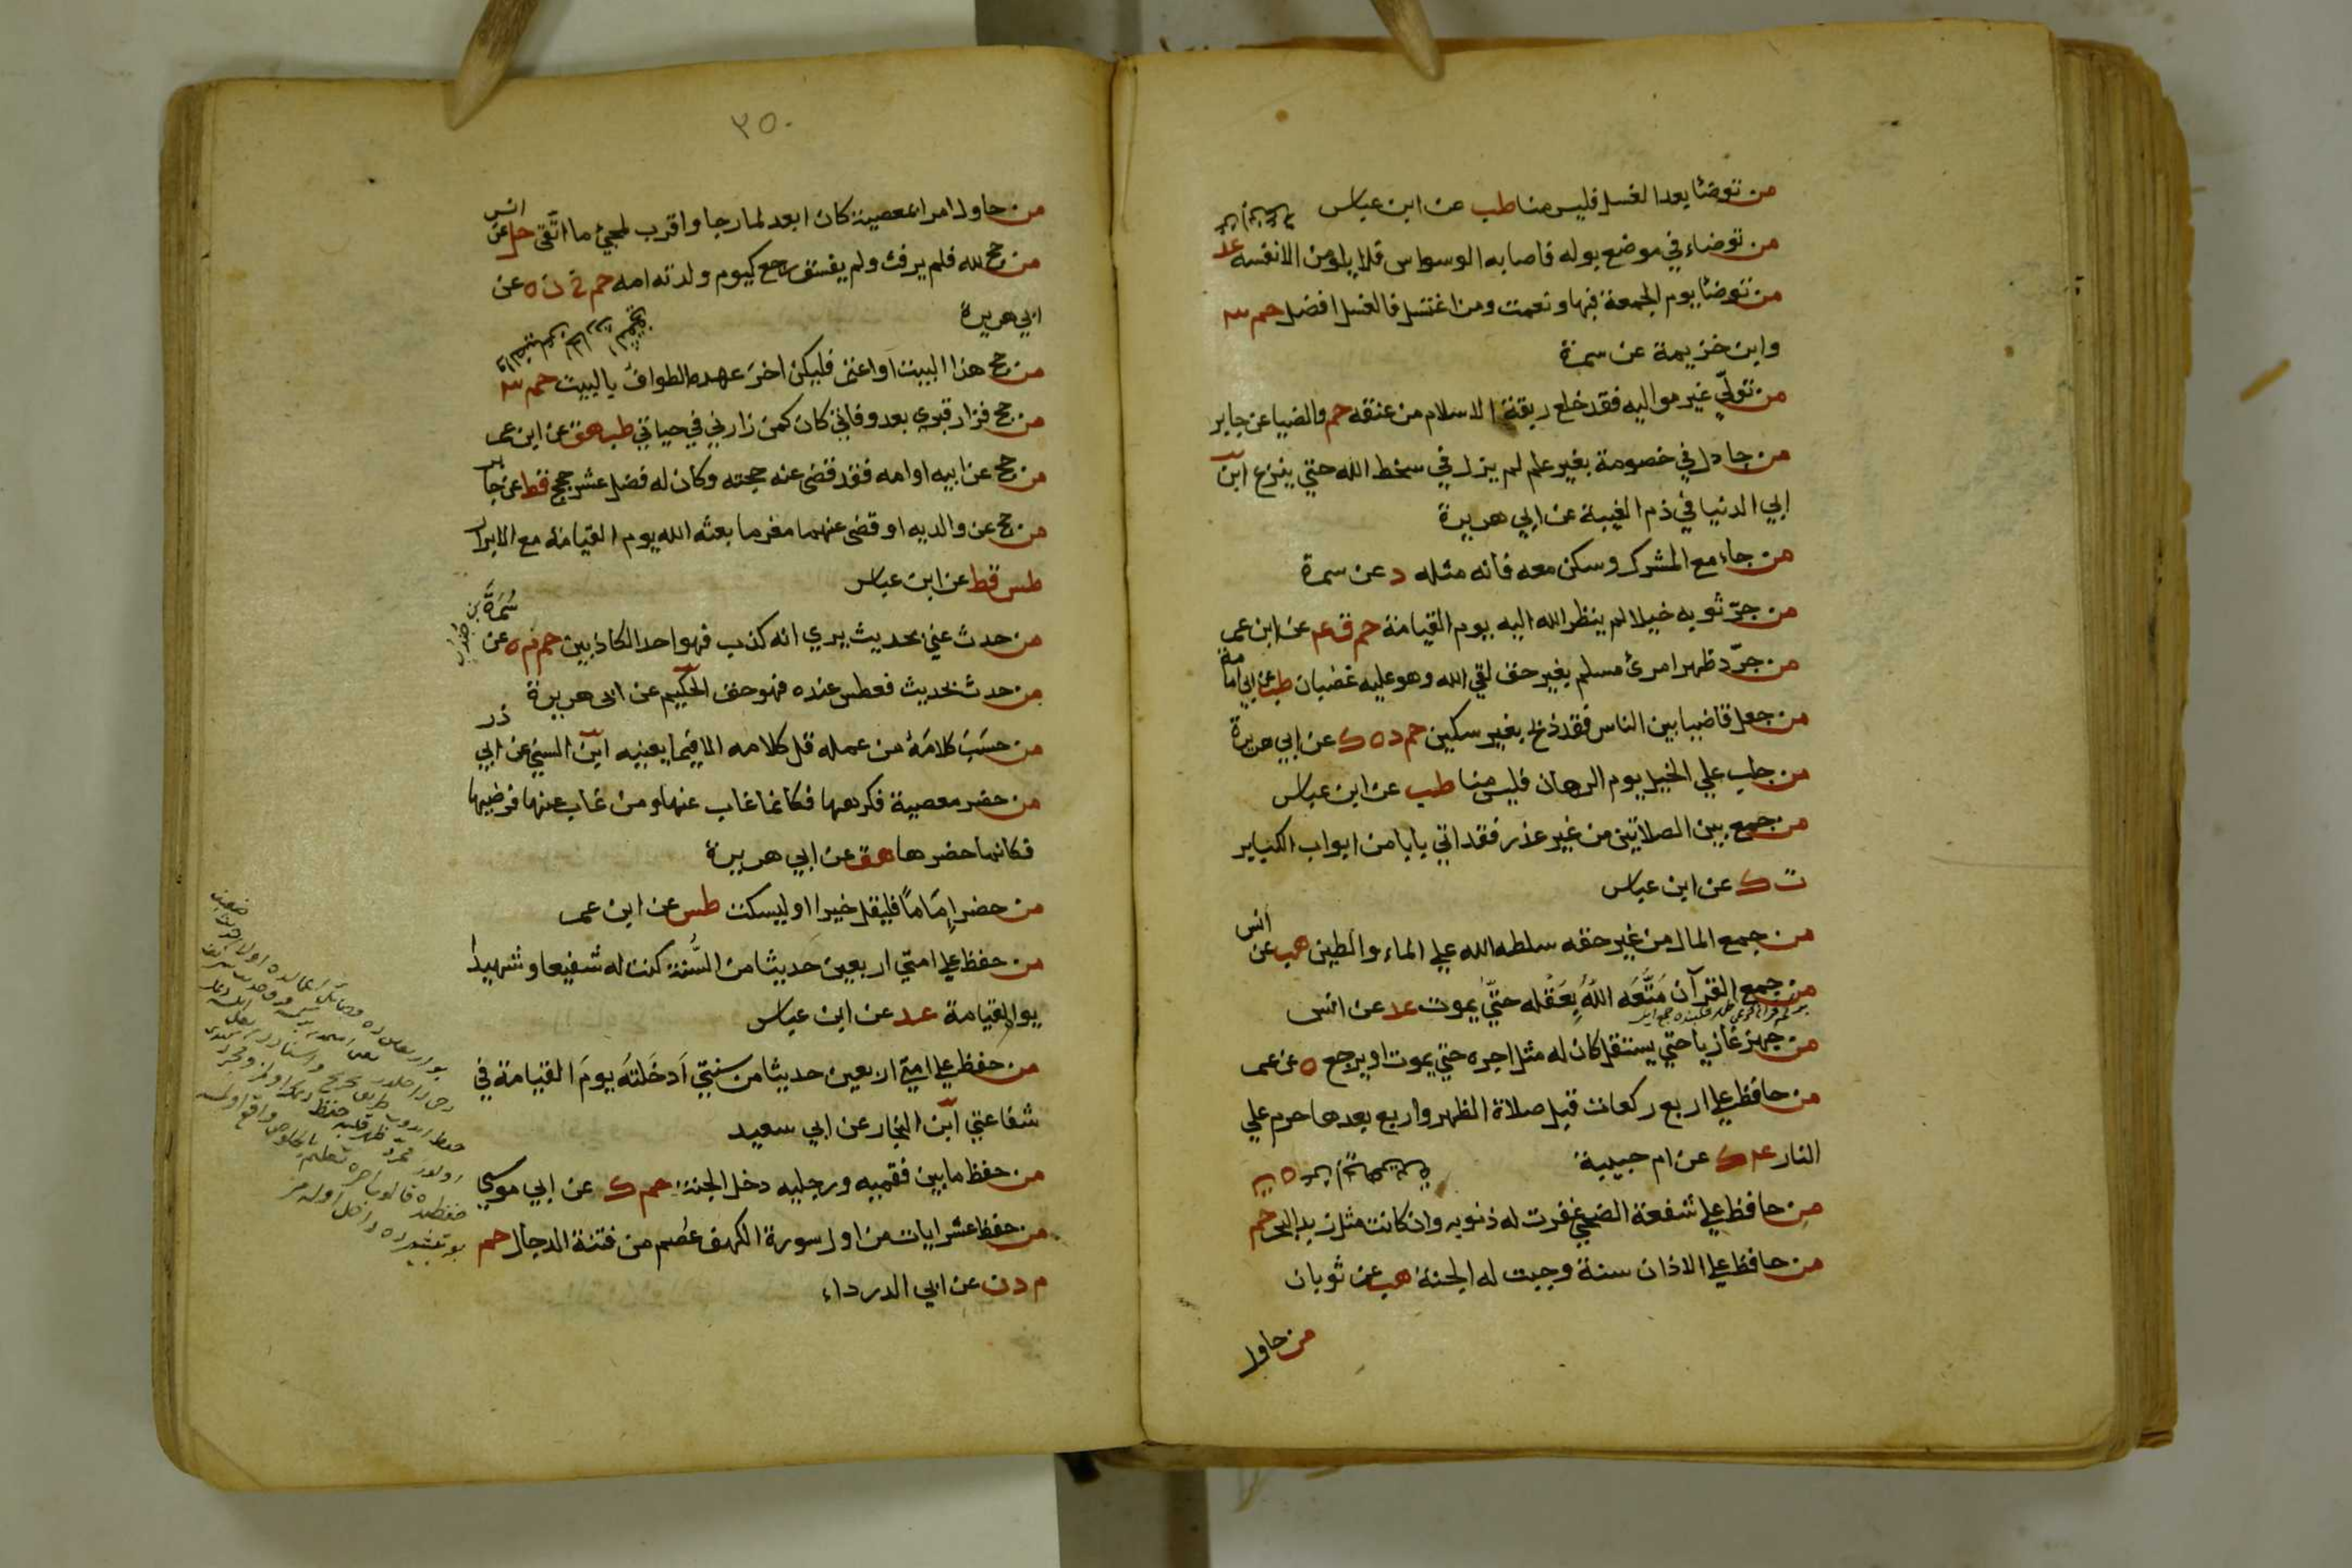 من توضأ بعد الغسل فليس منا طب عن ابن عباس
من توضاء في موضع بوله فاصابه الوسواس فلا يلومن الا نفسه عد
من توضأ يوم الجمعة فبها ونعمت ومن اغتسل فالغسل افضل حم ٣
وابن خزيمة عن سمرة
من تولّي غير مواليه فقد خلع ربقة الاسلام من عنقه حم والضيا عن جابر
من جادل في خصومة بغير علم لم يزل في سخط الله حتي ينزع ابن
ابي الدنيا في ذم الغيبة عن ابي هريرة
من جاء مع المشرك وسكن معه فانه مثله د عن سمرة
من جرّ ثوبه خيلا لم ينظر الله اليه يوم القيامة حم ق ٤ عن ابن عمر
من جرّد ظهر امرئ مسلم بغير حق لقي الله وهو عليه غضبان طب عن ابي امامة
من جعل قاضيا بين الناس فقد ذبح بغير سكين حم د ه ك عن ابي هريرة
من جلب علي الخيل يوم الرهان فليس منا طب عن ابن عباس
من جمع بين الصلاتين من غير عذر فقد اتي بابا من ابواب الكباير
ت ك عن ابن عباس
من جمع المال من غير حقه سلطه الله علي الماء والطين هب عن انس
من جمع القرآن مَتَّعَه اللّٰه بِعَقْله حتّي يموت عد عن انس
من جهز غازيا حتي يستقل كان له مثل اجره حتي يموت او يرجع ه عن عمر
من حافظ علي اربع ركعات قبل صلاة الظهر واربع بعدها حرم علي
النار ٤ ك عن ام حبيبة
من حافظ علي شفعة الضحي غفرت له ذنوبه وان كانت مثل زبد البحر حم
من حافظ علي الاذان سنة وجبت له الجنة هب عن ثوبان
من حاول
٢٥٠
من حاول امرا بمعصية كان ابعد لما رجا واقرب لمجئ ما اتّقى حل عن انس
من حج لله فلم يرفث ولم يفسق رجع كيوم ولدته امه حم خ ن ه عن
ابي هريرة
من حج هذا البيت او اعتمر فليكن اخرَ عهده الطوافُ بالبيت حم ٣
من حج فزار قبري بعد وفاتي كان كمن زارني في حياتي طب هق عن ابن عمر
من حج عن ابيه او امه فقد قضى عنه حجته وكان له فضل عشر حجج قط عن جابر
من حج عن والديه او قضى عنهما مغرما بعثه الله يوم القيامة مع الابرار
طس قط عن ابن عباس
من حدث عني بحديث يري انه كذب فهو احد الكاذبين حم م ه عن سَمُرَة بن جندب
من حدث بحديث فعطس عنده فهو حق الحكيم عن ابي هريرة
من حسَبَ كلامَهُ من عمله قل كلامه الا فيما يعنيه ابن السني عن ابي ذر
من حضر معصية فكرهها فكانما غاب عنها ومن غاب عنها فرضيها
فكانما حضرها هق عن ابي هريرة
من حضر إمَامًا فليقل خيرا او ليسكت طس عن ابن عمر
من حفظ علي امتي اربعين حديثا من السُّنة كنت له شفيعا وشهيدا
يوم القيامة عد عن ابن عباس
من حفظ علي امتي اربعين حديثا من سنتي اَدخَلتُه يومَ القيامة في
شفاعتي ابن النجار عن ابي سعيد
من حفظ ما بين فقميه ورجليه دخل الجنة حم ك عن ابي موسي
من حفظ عشر ايات من اول سورة الكهف عصُم من فتنة الدجال حم
م د ن عن ابي الدرداء